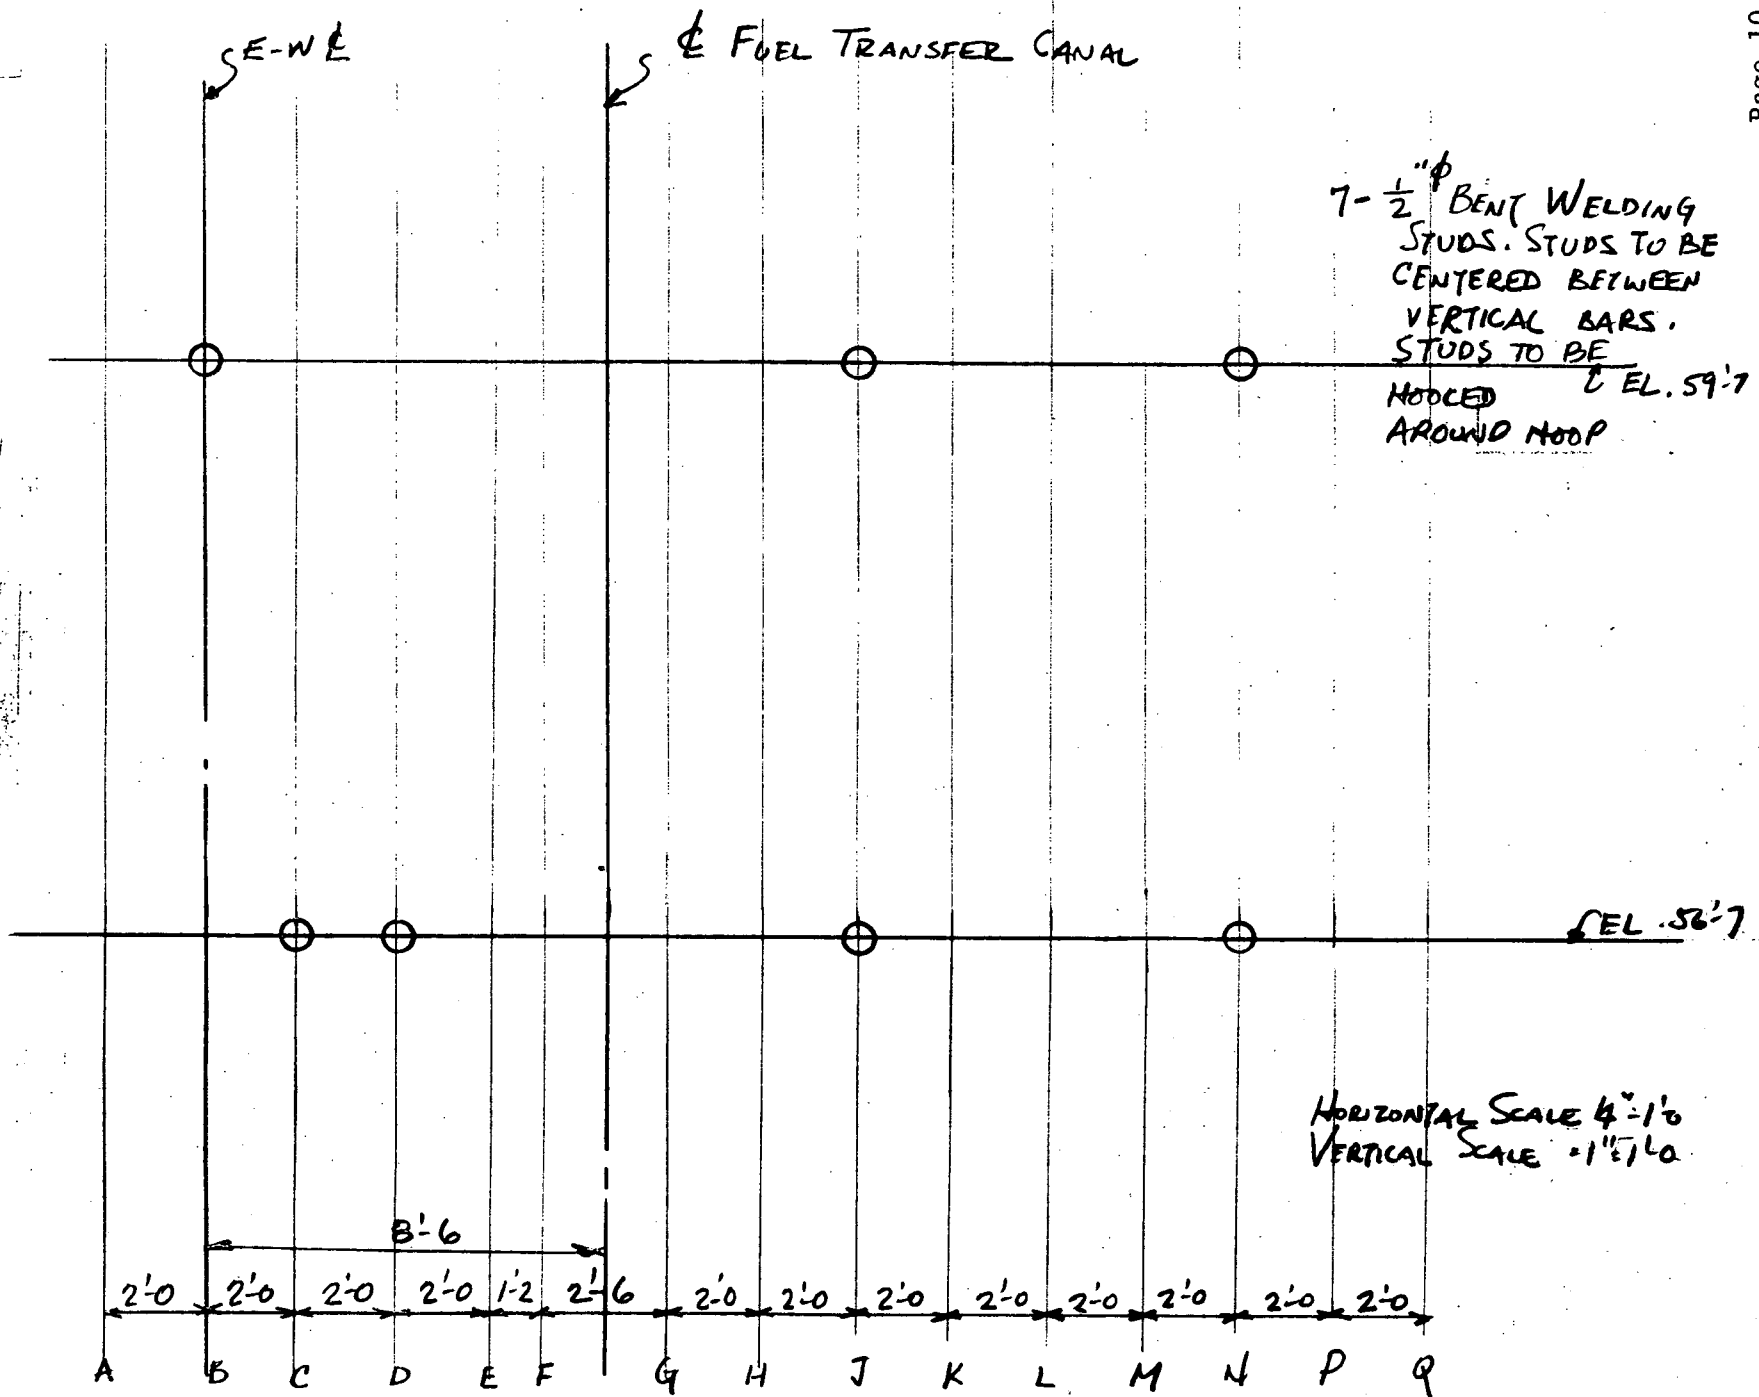 Page 10
E-W ℄
℄ FUEL TRANSFER CANAL
7- 1/2"φ BENT WELDING
STUDS. STUDS TO BE
CENTERED BETWEEN
VERTICAL BARS.
STUDS TO BE
EL. 59'-7
HOOCED
AROUND HOOP
EL. 56'-7
HORIZONTAL SCALE 4"=1'0
VERTICAL SCALE =1"=1'-0
8'-6
2'-0 2'-0 2'-0 2'-0 1-2 2'-6 2'-0 2'-0 2'-0 2'-0 2'-0 2'-0 2'-0 2'-0
A B C D E F G H J K L M N P Q